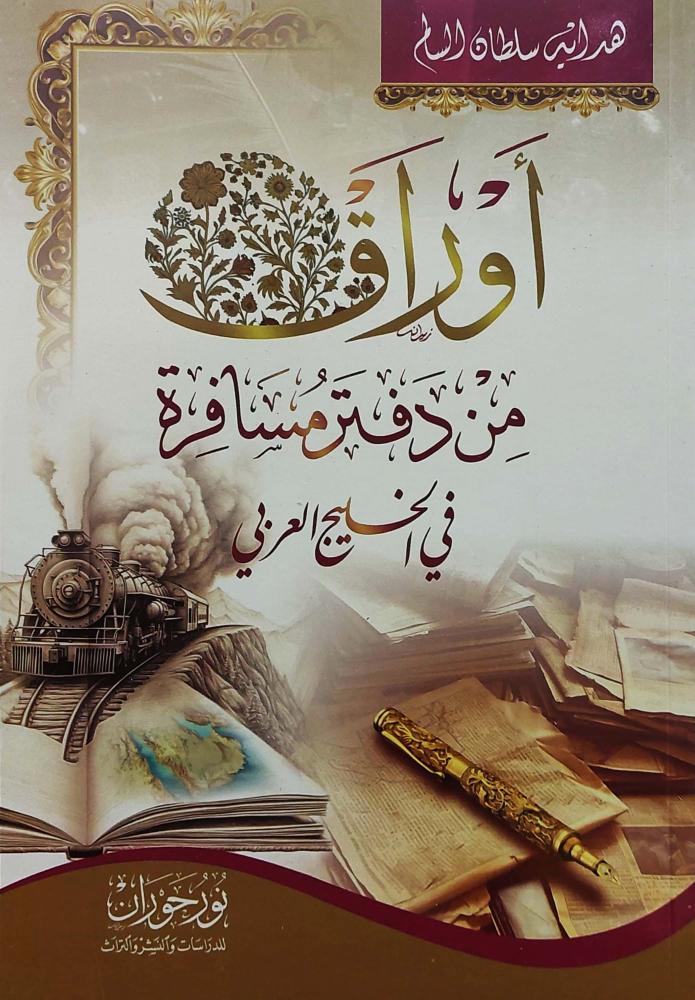 هداية سلطان السالم
أَوْرَاق
مِنْ دَفْتَر مُسَافِرة
في الخليج العربي
نُور حَوْرَانْ
للدراسات والنشر والتراث